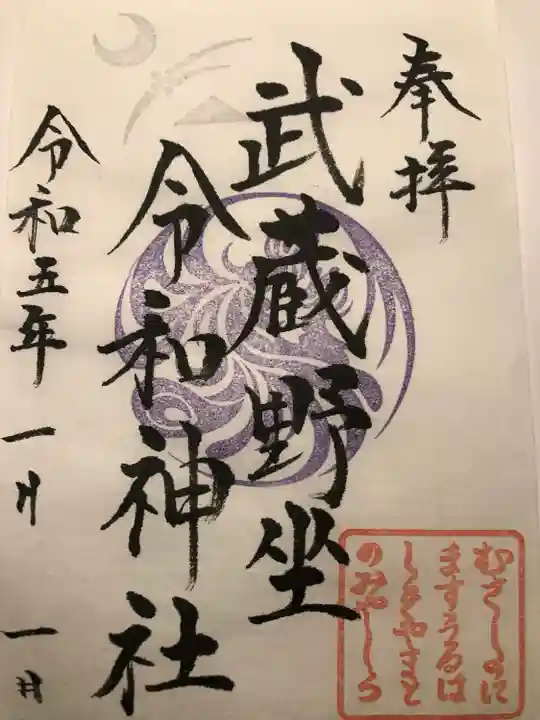 奉拝
武蔵野坐
令和神社
令和五年 一月 一日
むさしのに
ますうるは
しきやまと
のみやしろ